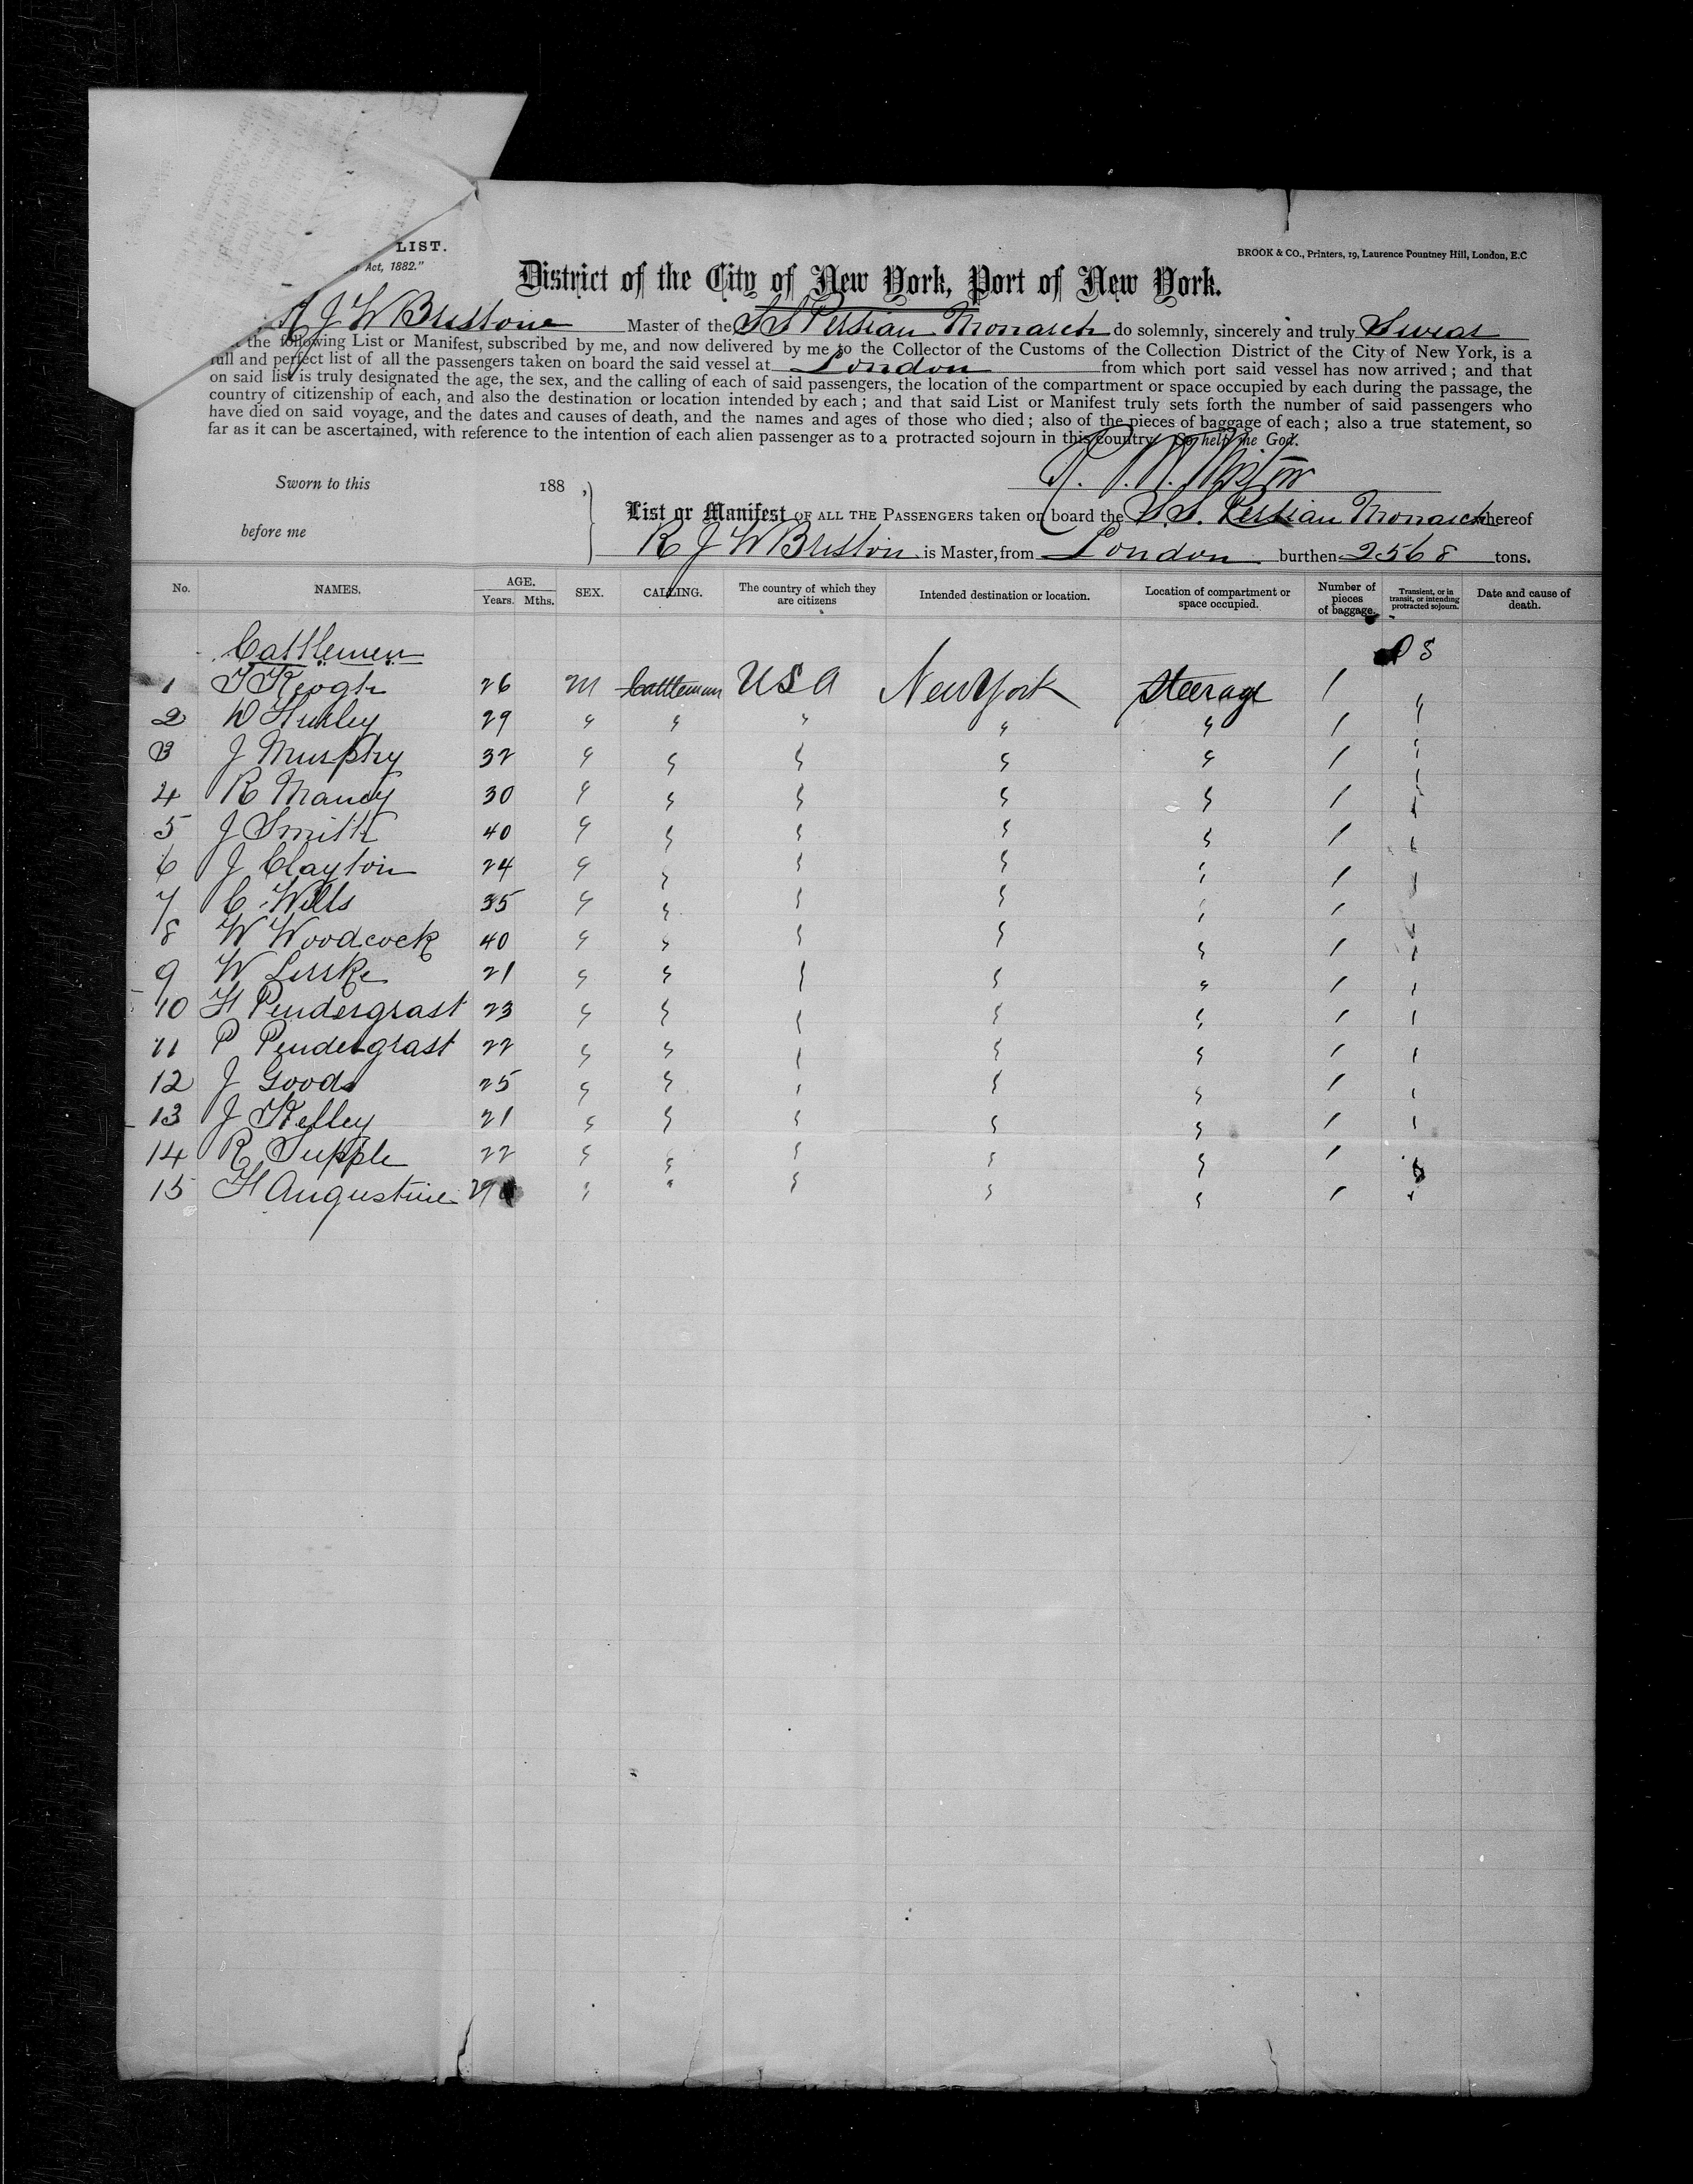 LIST.
Act, 1882."
BROOK & CO., Printers, 19, Laurence Pountney Hill, London, E.C
District of the City of New York, Port of New York.
R J W Bristow Master of the SS Persian Monarch do solemnly, sincerely and truly Swear
the following List or Manifest, subscribed by me, and now delivered by me to the Collector of the Customs of the Collection District of the City of New York, is a
full and perfect list of all the passengers taken on board the said vessel at London from which port said vessel has now arrived; and that
on said list is truly designated the age, the sex, and the calling of each of said passengers, the location of the compartment or space occupied by each during the passage, the
country of citizenship of each, and also the destination or location intended by each; and that said List or Manifest truly sets forth the number of said passengers who
have died on said voyage, and the dates and causes of death, and the names and ages of those who died; also of the pieces of baggage of each; also a true statement, so
far as it can be ascertained, with reference to the intention of each alien passenger as to a protracted sojourn in this country. So help me God.
Sworn to this 188 ,
before me
List or Manifest OF ALL THE PASSENGERS taken on board the S.S. Persian Monarch whereof
R J W Bristow is Master, from London burthen 2568 tons.
No. NAMES. AGE. Years. Mths. SEX. CALLING. The country of which they are citizens Intended destination or location. Location of compartment or space occupied. Number of pieces of baggage. Transient, or in transit, or intending protracted sojourn. Date and cause of death.
Cattlemen P S
1 T Keogh 26 M Cattleman USA New York Steerage 1
2 D Hurley 29 " " " " " 1 "
3 J Murphy 32 " " " " " 1 "
4 R Maney 30 " " " " " 1 "
5 J Smith 40 " " " " " 1 "
6 J Clayton 24 " " " " " 1 "
7 C Wills 35 " " " " " 1 "
8 W Woodcock 40 " " " " " 1 "
9 W 21 " " " " " 1 "
10 H Pendergrast 23 " " " " " 1 "
11 P Pendergrast 22 " " " " " 1 "
12 J Goods 25 " " " " " 1 "
13 J Kelley 21 " " " " " 1 "
14 R Supple 22 " " " " " 1 "
15 H Augustine 29 " " " " " 1 "